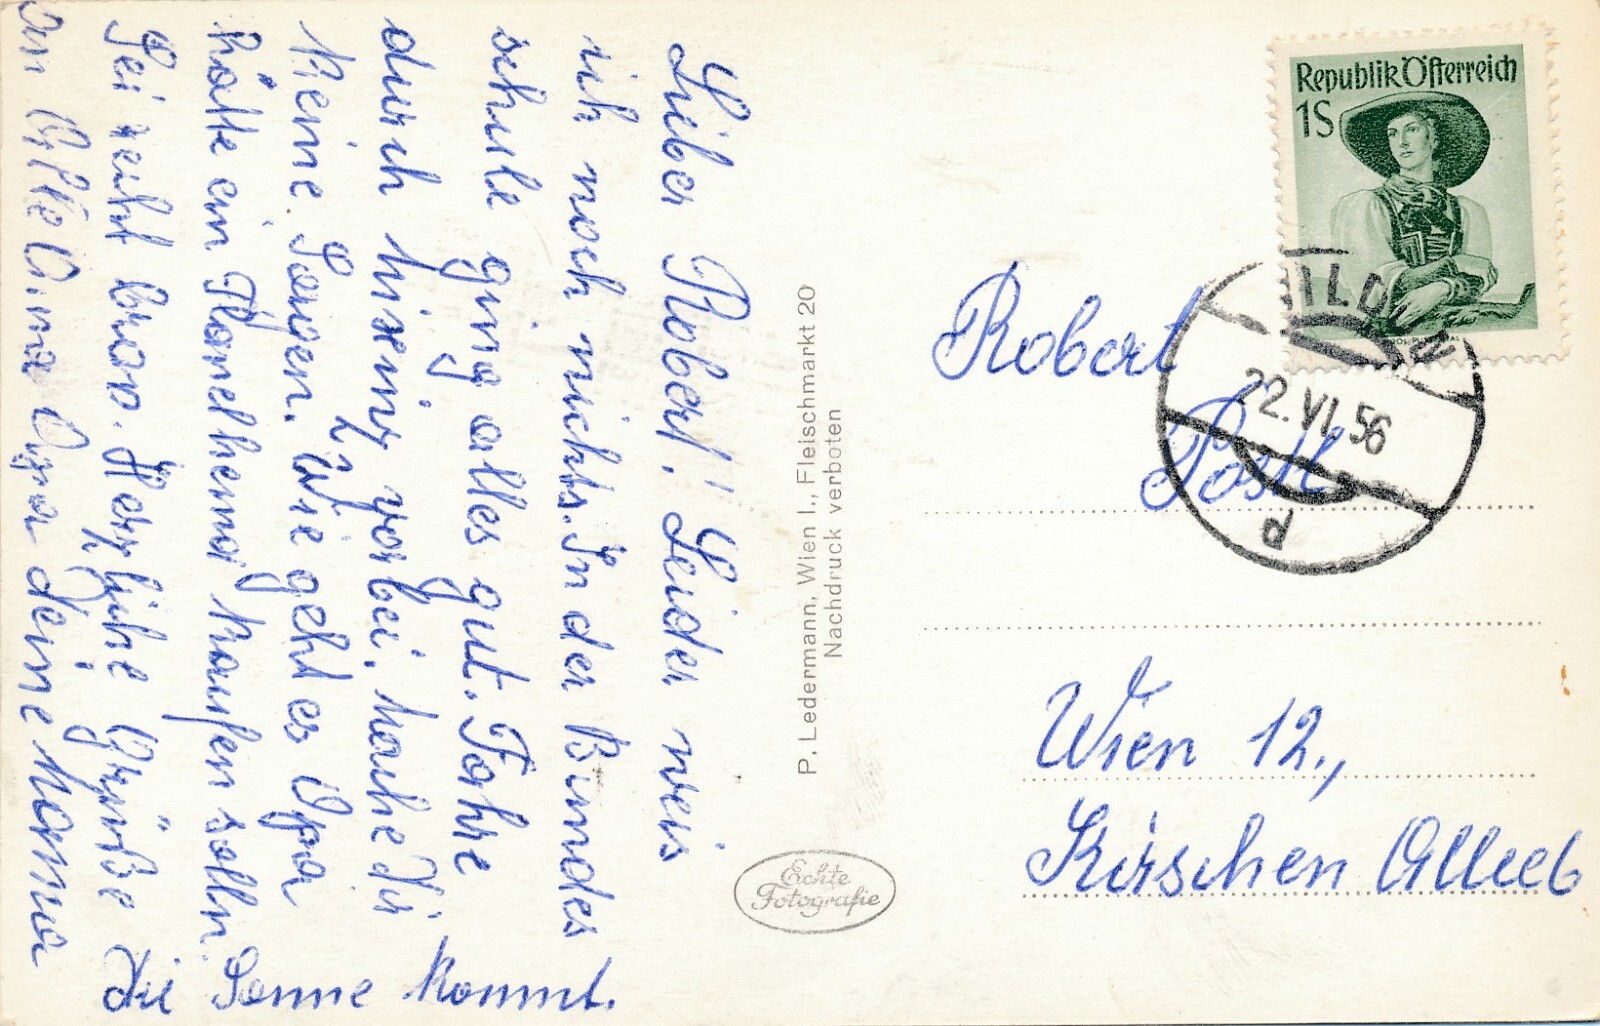 Lieber Robert! Leider weis
ich noch nichts. In der Bundes
schule ging alles gut. Fahre
durch hixing vorbei, mache dir
keine Sorgen. Wie geht es Opa
hätte ein Flanelhemd kaufen solln.
Sei recht brav. Herzliche Grüße
an Alle Oma Opa deine Mama
die Sonne kommt.
P. Ledermann, Wien I., Fleischmarkt 20
Nachdruck verboten
Echte
Fotografie
Republik Österreich
1S
22.VI.56
d
Robert
Postl
Wien 12.,
Kirschen Allee 6